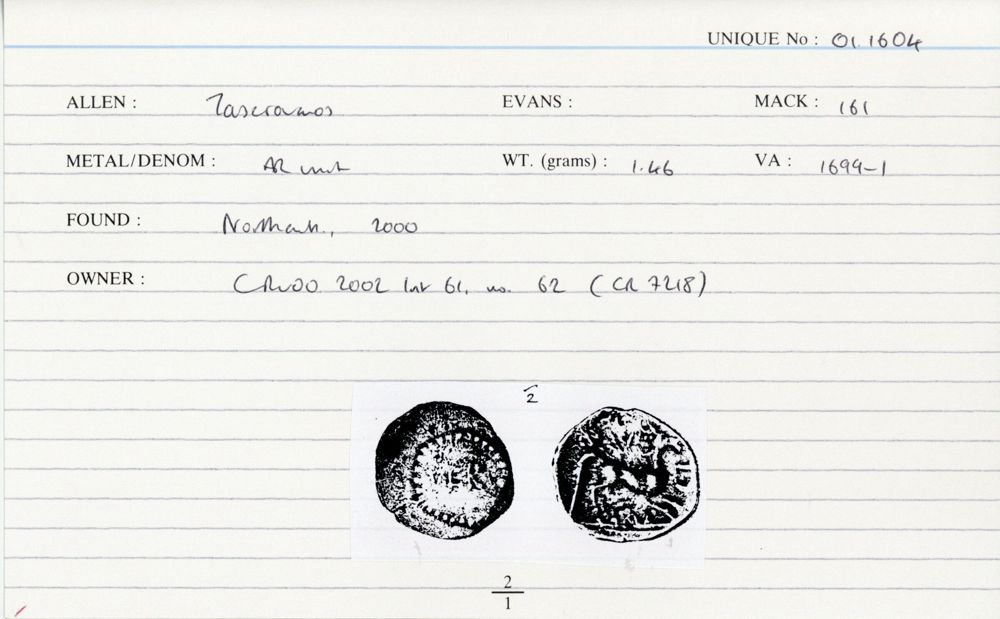 UNIQUE No : 01.1604
ALLEN : Tasciovanos EVANS : MACK : 161
METAL/DENOM : AR unit WT. (grams) : 1.46 VA : 1699-1
FOUND : Northants., 2000
OWNER : CRUDO 2002 List 61, no. 62 (CR 7218)
2
VER
2
1